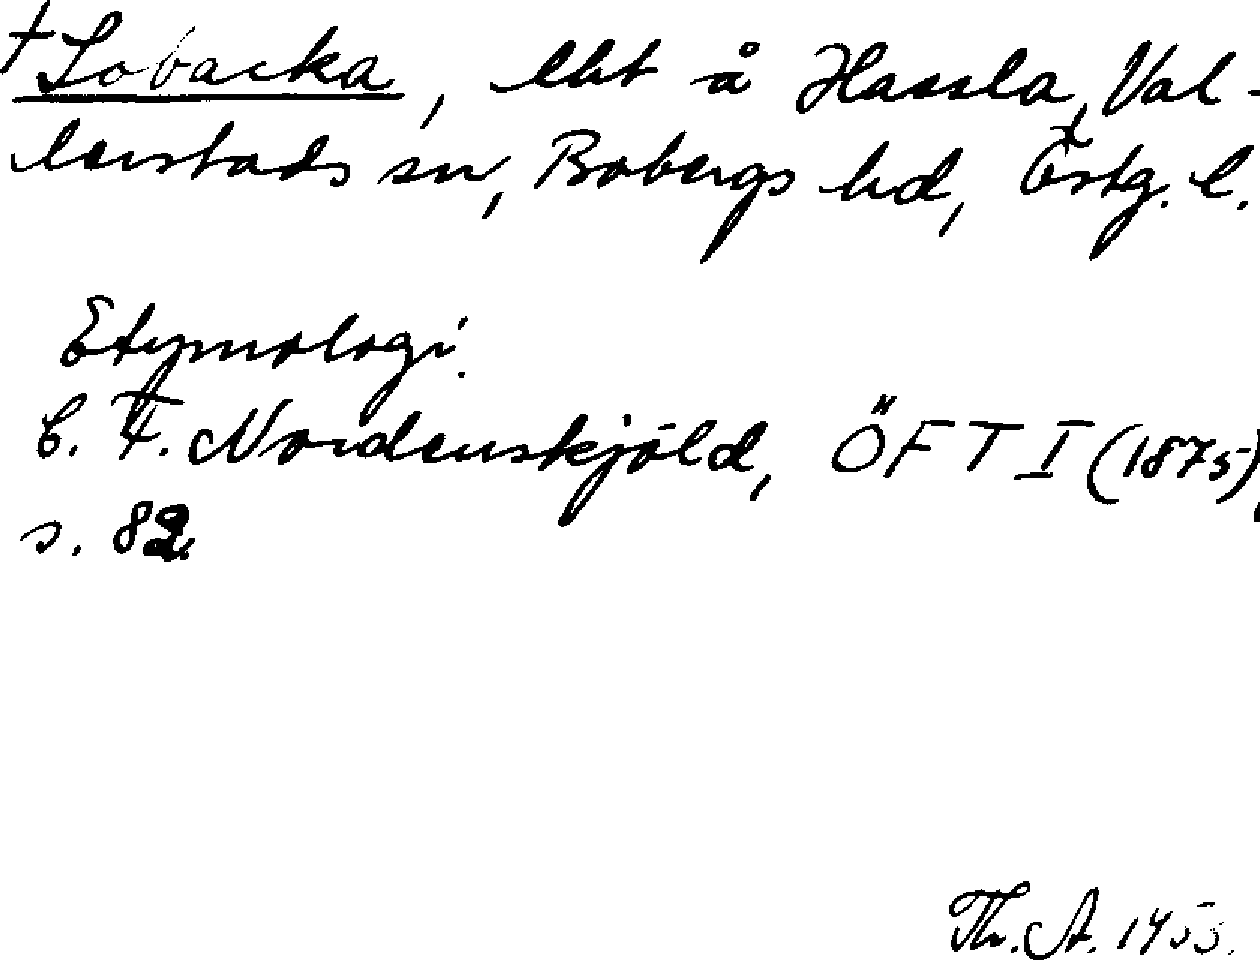 † Lobacka, lht å Hassla, Val-
lerstads sn, Bobergs hd, Östg. l.
Etymologi.
C. F. Nordenskjöld, ÖFT I (1875),
s. 82
Th. A. 1955.